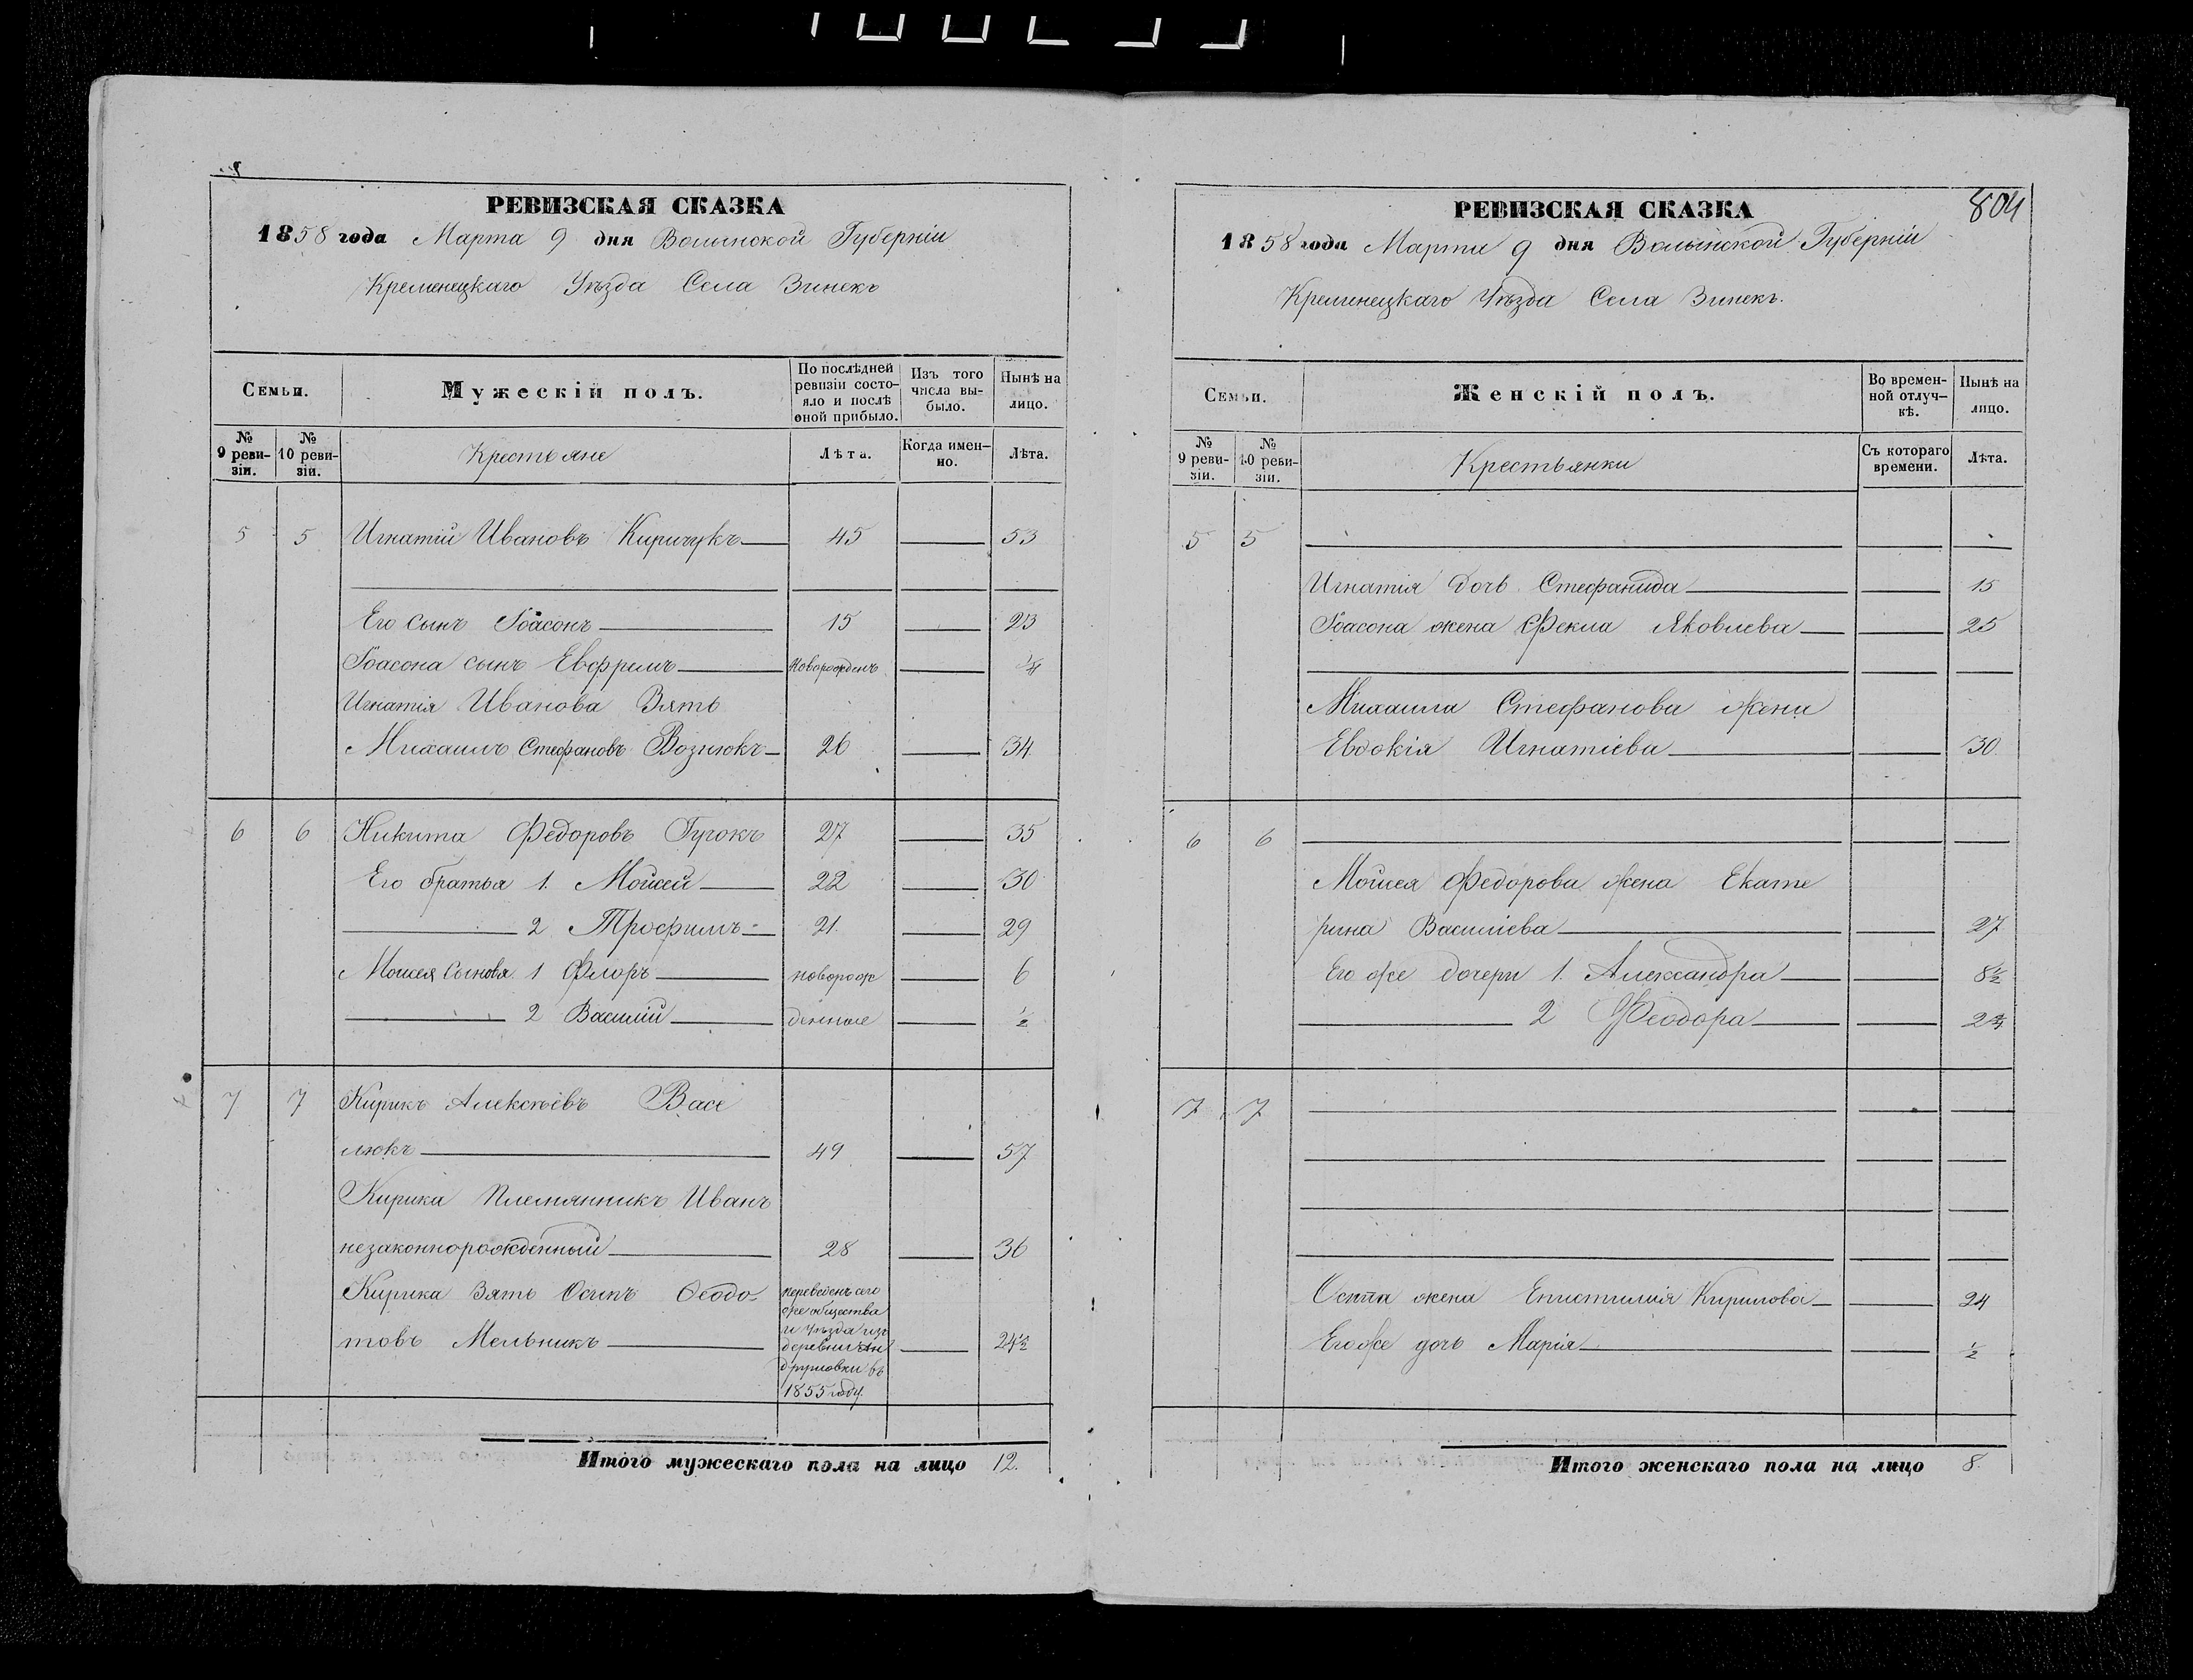 РЕВИЗСКАЯ СКАЗКА
1858 года Марта 9 дня Волынской Губерніи
Кременецкаго Уѣзда Села Зинекъ
Семьи.
Мужескій полъ.
По послѣдней ревизіи состояло и послѣ оной прибыло.
Изъ того числа выбыло.
Нынѣ на лицо.
№ 9 ревизіи.
№ 10 ревизіи.
Крестьяне
Лѣта.
Когда именно.
Лѣта.
5 5 Игнатій Ивановъ Киричукъ 45 53
Его сынъ Іоасонъ 15 23
Іоасона сынъ Евфремъ новорожденъ ¼
Игнатія Иванова Зять
Михаилъ Стефановъ Вознюкъ 26 34
6 6 Никита Федоровъ Гучокъ 27 35
Его братья 1. Мойсей 22 30
2 Трофимъ 21 29
Моисея Сыновя 1 Флоръ новорож 6
2 Василій денные ½
7 7 Кирикъ Алексѣевъ Васе
люкъ 49 57
Кирика Племянникъ Иванъ
незаконнорожденный 28 36
Кирика Зять Осипъ Ѳеодо-
товъ Мельникъ 24½
переведенъ сего
же общества
и уѣзда изъ
деревни Ан
друловки въ
1855 году.
Итого мужескаго пола на лицо 12.
804
РЕВИЗСКАЯ СКАЗКА
1858 года Марта 9 дня Волынской Губерніи
Кременецкаго Уѣзда Села Зинекъ.
Семьи.
Женскій полъ.
Во временной отлучкѣ.
Нынѣ на лицо.
№ 9 ревизіи.
№ 10 ревизіи.
Крестьянки
Съ котораго времени.
Лѣта.
5 5
Игнатія дочь Стефанида 15
Іоасона жена Фекла Яковлева 25
Михаила Стефанова жена
Евдокія Игнатіева 30
6 6
Мойсея Федорова жена Екате
рина Василіева 27
Его же дочери 1. Александра 8½
2 Феодора 2¾
7 7
Осипа жена Епистимія Кирилова 24
Его же дочь Марія ½
Итого женскаго пола на лицо 8.